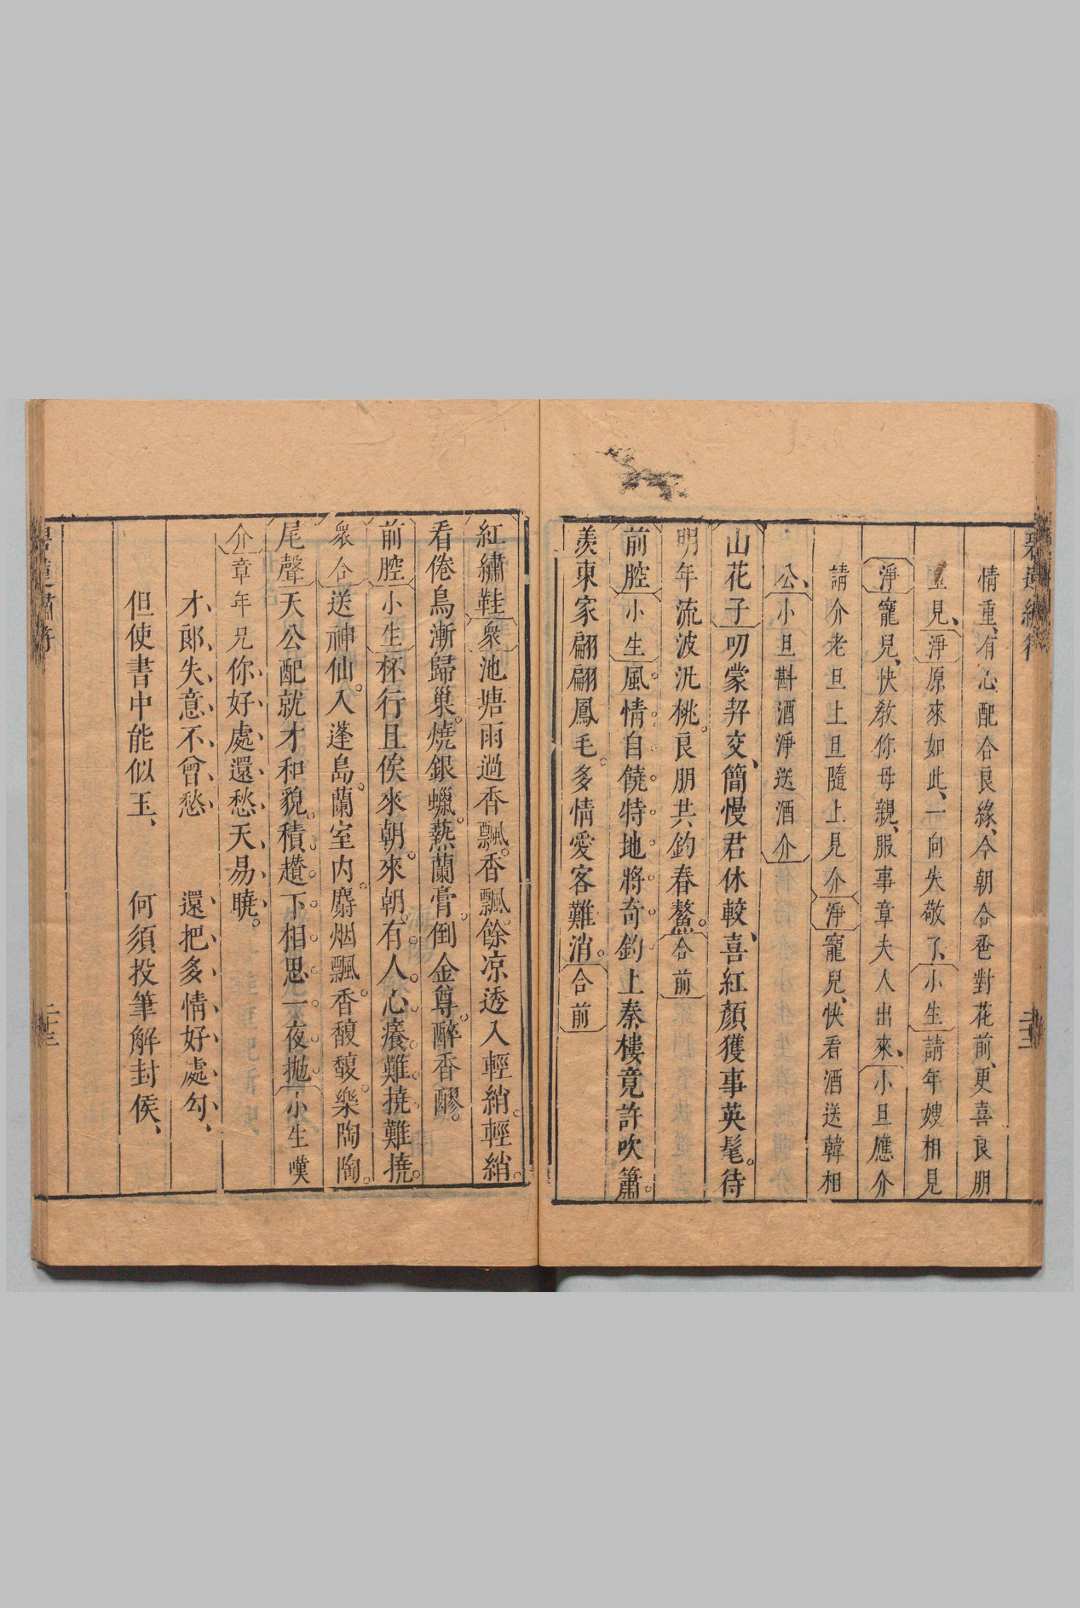 情重、有心配合良緣、今朝合卺對花前、更喜良朋
見、淨原來如此、一向失敬了、小生請年嫂相見
淨寵兒、快教你母親、服事章夫人出來、小旦應介
請介老旦上旦隨上見介淨寵兒、快看酒送韓相
公、小旦斟酒淨送酒介
山花子叨蒙弃交、簡慢君休較、喜紅顏獲事英髦。待
明年流波汎桃。良朋共釣春鰲。合前
前腔小生風。情自饒。特地將奇釣上秦樓竟許吹簫。
羨東家翩翩鳳毛。多情愛客難消。合前
紅繡鞋衆池塘雨過香飄。香飄。餘凉透入輕綃。輕綃。
看倦鳥漸歸巢。燒銀蠟。爇蘭膏。倒金尊。醉香醪。
前腔小生杯行且俟來朝。來朝。有人心癢難撓難撓。
衆合送神仙。入蓬島。蘭室內。麝烟飄。香馥馥。樂陶陶。
尾聲天公配就才和貌。積趲下相思一夜拋。小生嘆
介章年兄你好處還愁天易曉。
才郎失意不曾愁　還把多情好處勾、
但使書中能似玉、　何須投筆解封侯、
二十三